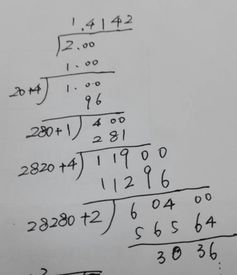 1.4142
2.00
1.00
20+4 1.00
96
280+1 4 00
2 81
2820+4 1 19 00
1 12 96
28280+2 6 04 00
5 65 64
38 36